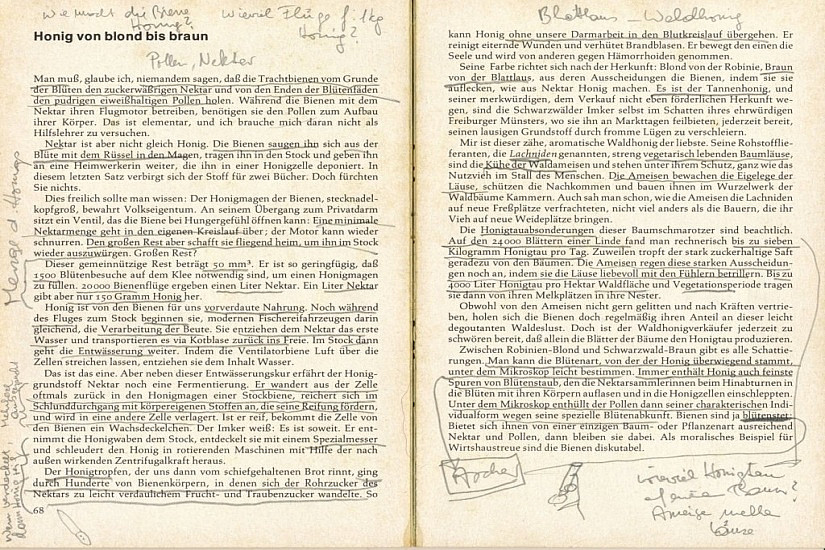 Wie macht die Biene Honig?
Wieviel Flüge f. 1 kg Honig?
Honig von blond bis braun
Pollen, Nektar
Man muß, glaube ich, niemandem sagen, daß die Trachtbienen vom Grunde
der Blüten den zuckerwäßrigen Nektar und von den Enden der Blütenfäden
den pudrigen eiweißhaltigen Pollen holen. Während die Bienen mit dem
Nektar ihren Flugmotor betreiben, benötigen sie den Pollen zum Aufbau
ihrer Körper. Das ist elementar, und ich brauche mich daran nicht als
Hilfslehrer zu versuchen.
Nektar ist aber nicht gleich Honig. Die Bienen saugen ihn sich aus der
Blüte mit dem Rüssel in den Magen, tragen ihn in den Stock und geben ihn
an eine Heimwerkerin weiter, die ihn in einer Honigzelle deponiert. In
diesem letzten Satz verbirgt sich der Stoff für zwei Bücher. Doch fürchten
Sie nichts.
Dies freilich sollte man wissen: Der Honigmagen der Bienen, stecknadel-
kopfgroß, bewahrt Volkseigentum. An seinem Übergang zum Privatdarm
sitzt ein Ventil, das die Biene bei Hungergefühl öffnen kann: Eine minimale
Nektarmenge geht in den eigenen Kreislauf über; der Motor kann wieder
schnurren. Den großen Rest aber schafft sie fliegend heim, um ihn im Stock
wieder auszuwürgen. Großen Rest?
Dieser gemeinnützige Rest beträgt 50 mm³. Er ist so geringfügig, daß
1500 Blütenbesuche auf dem Klee notwendig sind, um einen Honigmagen
zu füllen. 20000 Bienenflüge ergeben einen Liter Nektar. Ein Liter Nektar
gibt aber nur 150 Gramm Honig her.
Honig ist von den Bienen für uns vorverdaute Nahrung. Noch während
des Fluges zum Stock beginnen sie, modernen Fischereifahrzeugen darin
gleichend, die Verarbeitung der Beute. Sie entziehen dem Nektar das erste
Wasser und transportieren es via Kotblase zurück ins Freie. Im Stock dann
geht die Entwässerung weiter. Indem die Ventilatorbiene Luft über die
Zellen streichen lassen, entziehen sie dem Inhalt Wasser.
Das ist das eine. Aber neben dieser Entwässerungskur erfährt der Honig-
grundstoff Nektar noch eine Fermentierung. Er wandert aus der Zelle
oftmals zurück in den Honigmagen einer Stockbiene, reichert sich im
Schlunddurchgang mit körpereigenen Stoffen an, die seine Reifung fördern,
und wird in eine andere Zelle verlagert. Ist er reif, bekommt die Zelle von
den Bienen ein Wachsdeckelchen. Der Imker weiß: Es ist soweit. Er ent-
nimmt die Honigwaben dem Stock, entdeckelt sie mit einem Spezialmesser
und schleudert den Honig in rotierenden Maschinen mit Hilfe der nach
außen wirkenden Zentrifugalkraft heraus.
Der Honigtropfen, der uns dann vom schiefgehaltenen Brot rinnt, ging
durch Hunderte von Bienenkörpern, in denen sich der Rohrzucker des
Nektars zu leicht verdaulichem Frucht- und Traubenzucker wandelte. So
68
Menge d. Honigs
Blattlaus – Waldhonig
kann Honig ohne unsere Darmarbeit in den Blutkreislauf übergehen. Er
reinigt eiternde Wunden und verhütet Brandblasen. Er bewegt den einen die
Seele und wird von anderen gegen Hämorrhoiden genommen.
Seine Farbe richtet sich nach der Herkunft: Blond von der Robinie, Braun
von der Blattlaus, aus deren Ausscheidungen die Bienen, indem sie sie
auflecken, wie aus Nektar Honig machen. Es ist der Tannenhonig, und
seiner merkwürdigen, dem Verkauf nicht eben förderlichen Herkunft we-
gen, sind die Schwarzwälder Imker selbst im Schatten ihres ehrwürdigen
Freiburger Münsters, wo sie ihn an Markttagen feilbieten, jederzeit bereit,
seinen lausigen Grundstoff durch fromme Lügen zu verschleiern.
Mir ist dieser zähe, aromatische Waldhonig der liebste. Seine Rohstofflie-
feranten, die Lachniden genannten, streng vegetarisch lebenden Baumläuse,
sind die Kühe der Waldameisen und stehen unter ihrem Schutz, ganz wie das
Nutzvieh im Stall des Menschen. Die Ameisen bewachen die Eigelege der
Läuse, schützen die Nachkommen und bauen ihnen im Wurzelwerk der
Waldbäume Kammern. Auch sah man schon, wie die Ameisen die Lachniden
auf neue Freßplätze verfrachteten, nicht viel anders als die Bauern, die ihr
Vieh auf neue Weideplätze bringen.
Die Honigtauabsonderungen dieser Baumschmarotzer sind beachtlich.
Auf den 24000 Blättern einer Linde fand man rechnerisch bis zu sieben
Kilogramm Honigtau pro Tag. Zuweilen tropft der stark zuckerhaltige Saft
geradezu von den Bäumen. Die Ameisen regen diese starken Ausscheidun-
gen noch an, indem sie die Läuse liebevoll mit den Fühlern betrillern. Bis zu
4000 Liter Honigtau pro Hektar Waldfläche und Vegetationsperiode tragen
sie dann von ihren Melkplätzen in ihre Nester.
Obwohl von den Ameisen nicht gern gelitten und nach Kräften vertrie-
ben, holen sich die Bienen doch regelmäßig ihren Anteil an dieser leicht
degoutanten Waldeslust. Doch ist der Waldhonigverkäufer jederzeit zu
schwören bereit, daß allein die Blätter der Bäume den Honigtau produzieren.
Zwischen Robinien-Blond und Schwarzwald-Braun gibt es alle Schattie-
rungen. Man kann die Blütenart, von der der Honig überwiegend stammt,
unter dem Mikroskop leicht bestimmen. Immer enthält Honig auch feinste
Spuren von Blütenstaub, den die Nektarsammlerinnen beim Hinabturnen in
die Blüten mit ihren Körpern auflasen und in die Honigzellen einschleppten.
Unter dem Mikroskop enthüllt der Pollen dann seiner charakteristischen Indi-
vidualform wegen seine spezielle Blütenabkunft. Bienen sind ja blütenstet:
Bietet sich ihnen von einer einzigen Baum- oder Pflanzenart ausreichend
Nektar und Pollen, dann bleiben sie dabei. Als moralisches Beispiel für
Wirtshaustreue sind die Bienen diskutabel.
wieviel Honigtau
Baum?
Ameise
Läuse